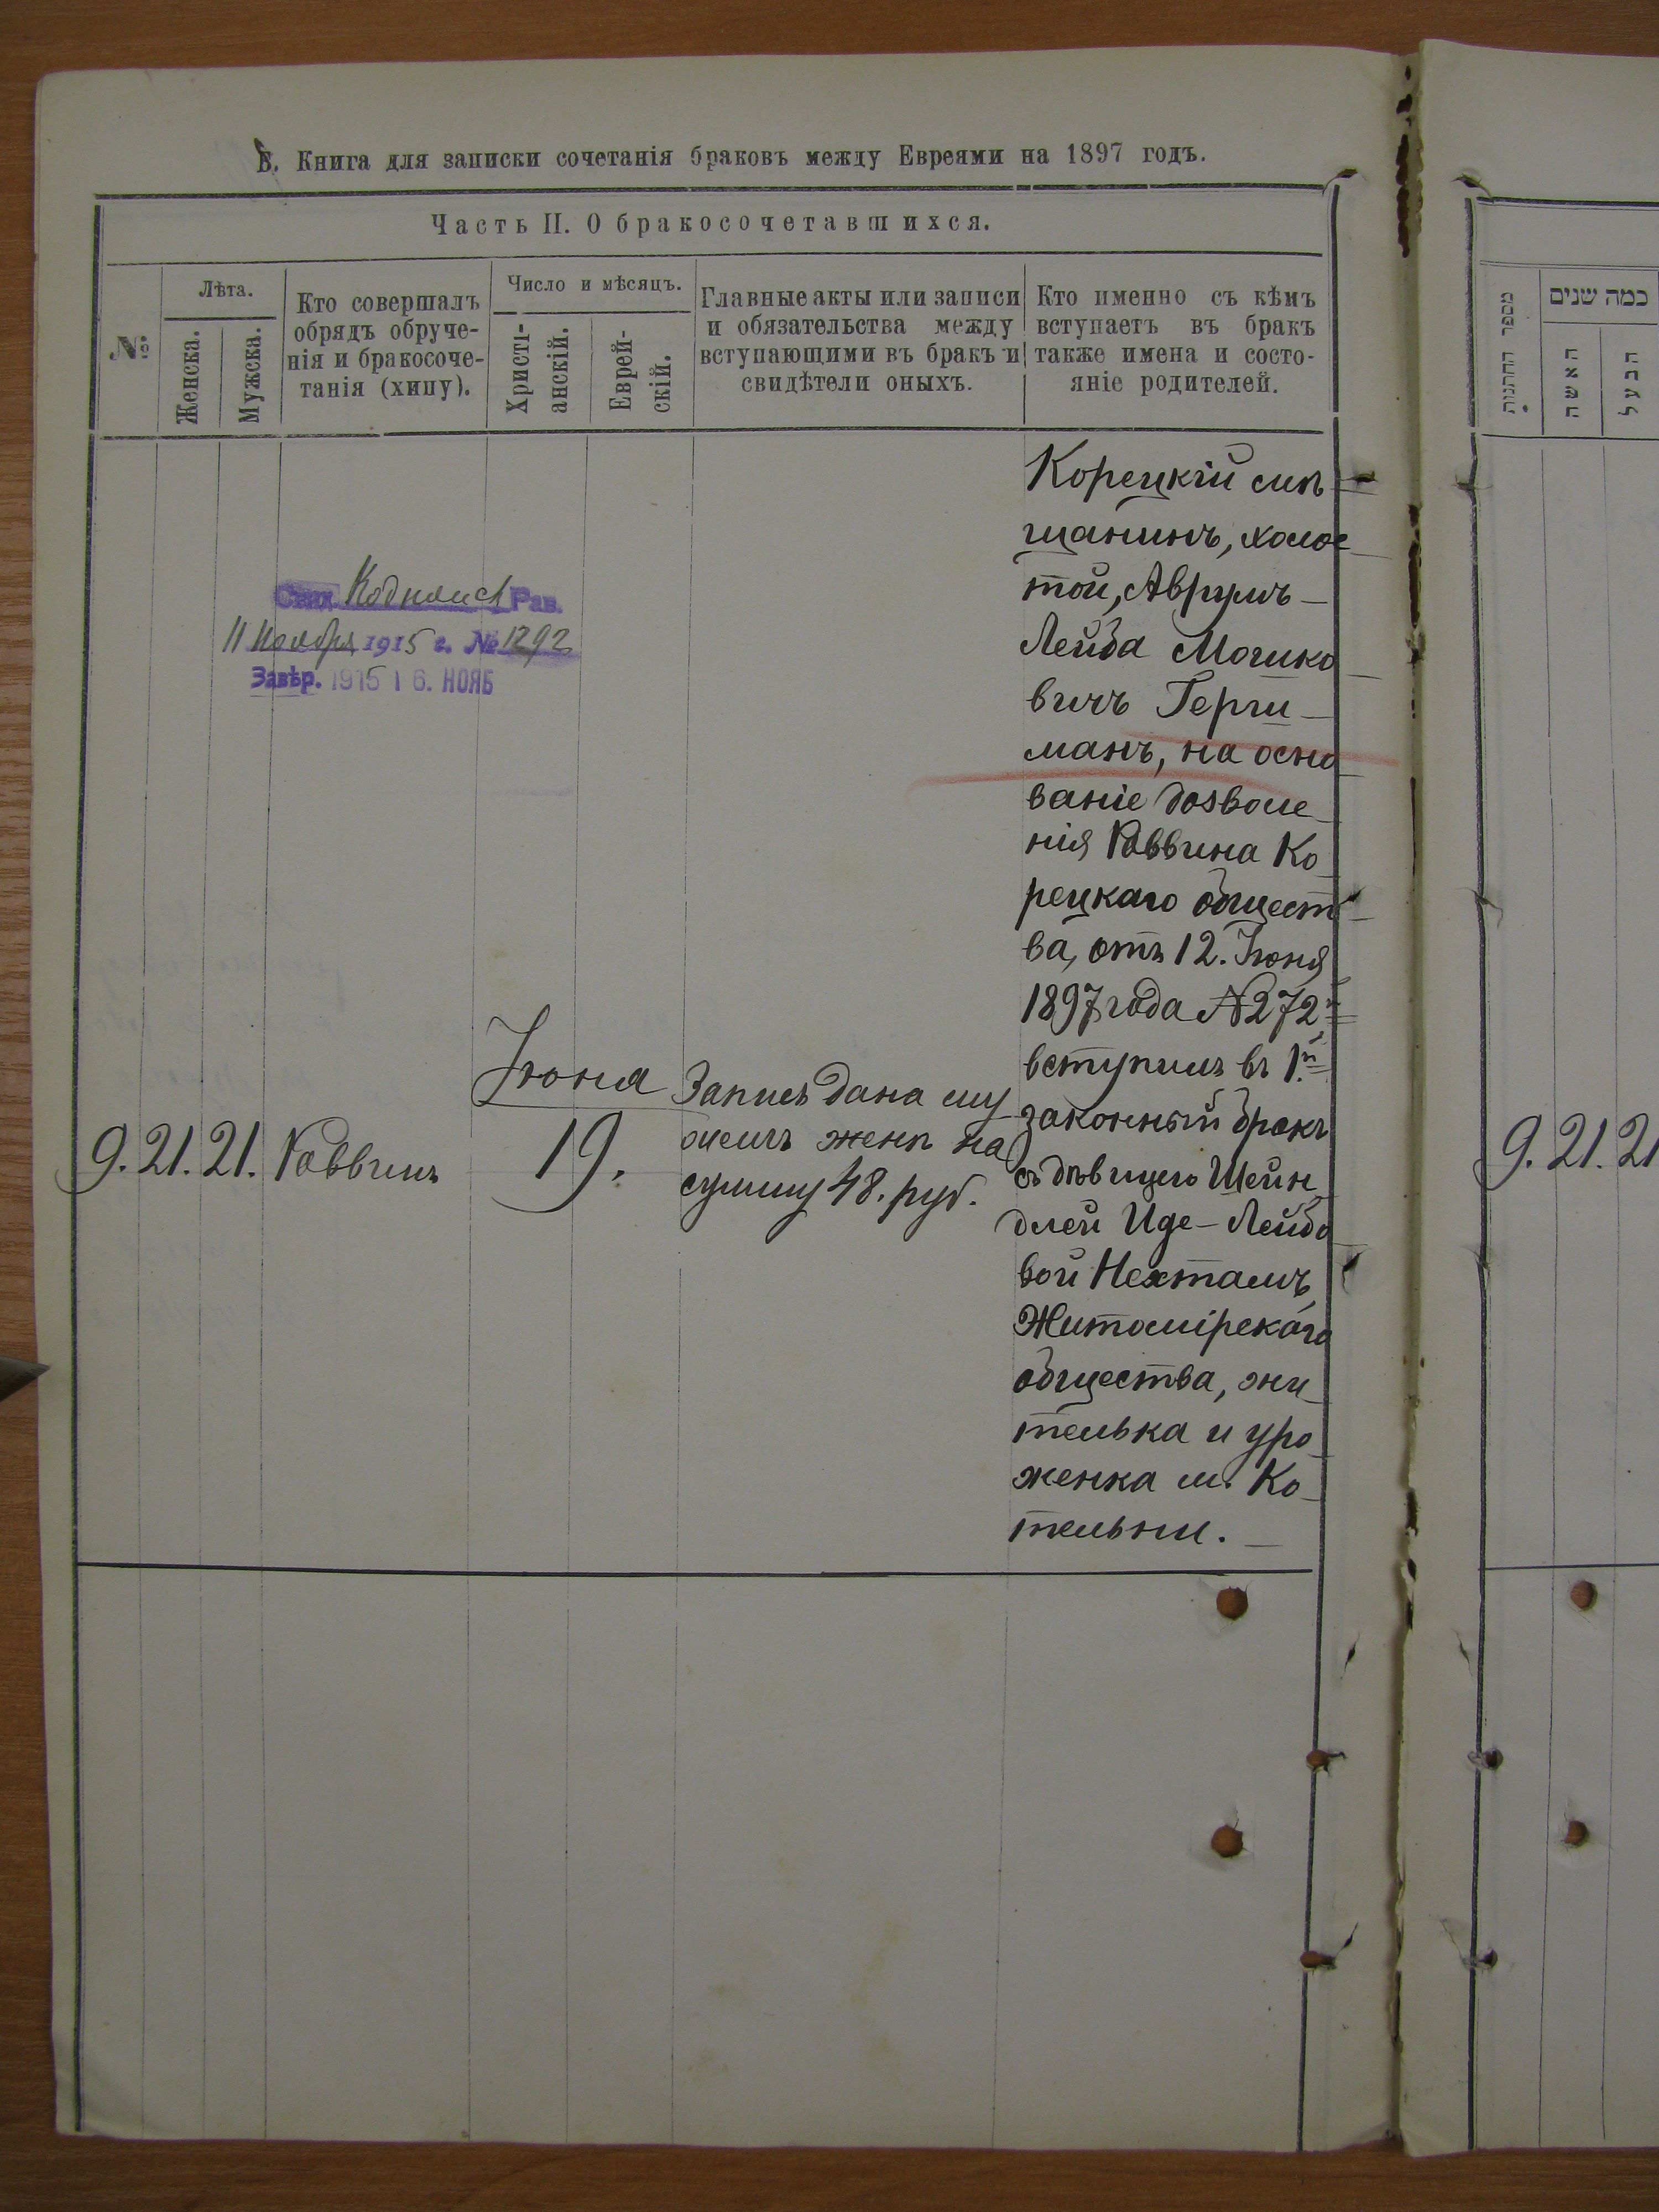 Б. Книга для записки сочетанія браковъ между Евреями на 1897 годъ.
Часть II. О бракосочетавшихся.
№
Лѣта.
Женска.
Мужска.
Кто совершалъ
обрядъ обруче-
нія и бракосоче-
танія (хипу).
Число и мѣсяцъ.
Христі-
анскій.
Еврей-
скій.
Главные акты или записи
и обязательства между
вступающими въ бракъ и
свидѣтели оныхъ.
Кто именно съ кѣмъ
вступаетъ въ бракъ
также имена и состо-
яніе родителей.
Свид. Рав.
11 Ноября 1915 г. № 1292
Завѣр. 1915 16. НОЯБ
9. 21. 21. Раввинъ
Іюня
19.
Запись дана му
жемъ женѣ на
сумму 48. руб.
Корецкій мѣ
щанинъ, холос
той, Аврумъ-
Лейба Мошко
вичъ Герш-
манъ, на осно
ваніе дозволе
нія Раввина Ко
рецкаго общест
ва, отъ 12. Іюня
1897 года №272
вступилъ въ 1й
законный бракъ
съ дѣвицею Шейн
длей Иде-Лейбо
вой Нехтамъ,
Житомірскаго
общества, жи
телька и уро
женка м. Ко
тельни.
מספר החתונות
כמה שנים
האשה
הבעל
9. 21. 21